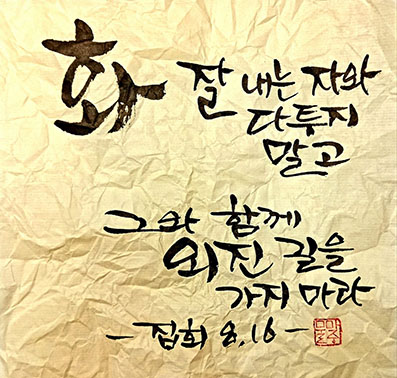 화 잘 내는 자와
다투지
말고
그와 함께
외진 길을
가지 마라
- 집회 8,16 -